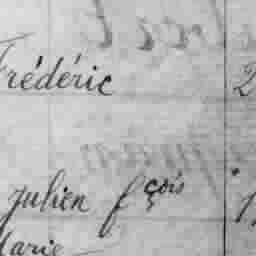 Frédéric 2
Julien fçois 1
Marie